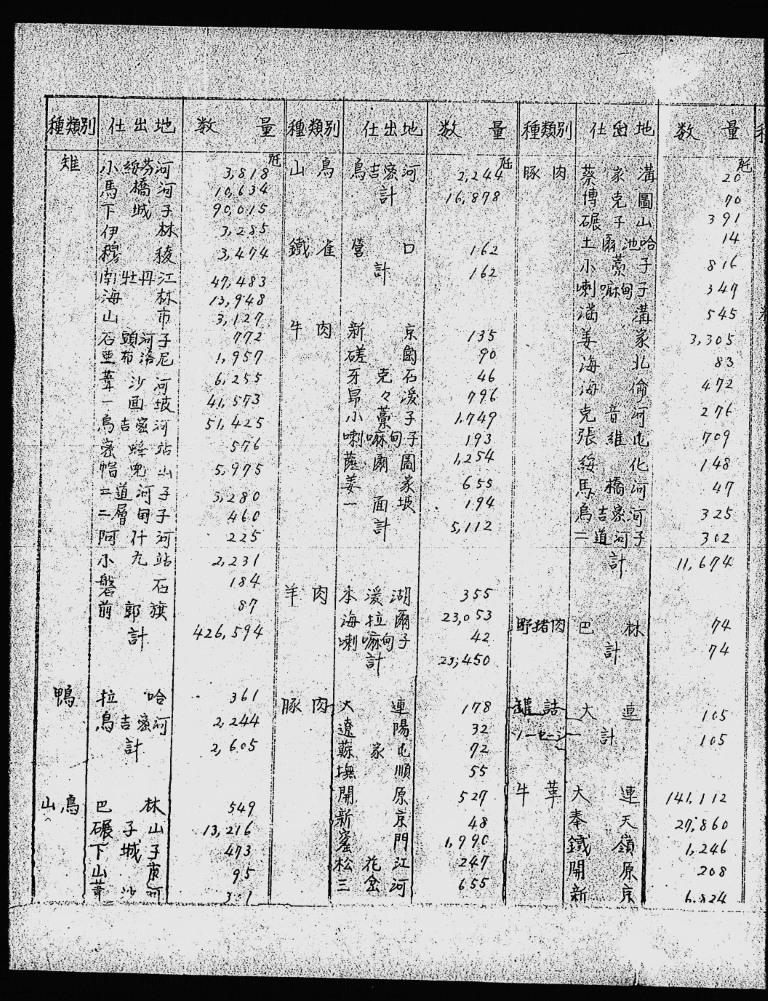 種類別 仕出地 数量
瓩
雉 小綏芬河 3,818
馬橋河 10,634
下城子 90,015
伊林 3,285
穆稜 3,474
南牡丹江 47,483
海林 13,948
山市 3,127
石頭河子 772
亜布洛尼 1,957
葦沙河 6,255
一面坡 41,573
烏吉密河 51,425
蜜蜂站 576
帽児山 5,975
二道河子 3,280
二層甸子 460
阿什河 225
小九站 2,231
磐石 184
前郭旗 87
計 426,594
鴨 拉哈 361
烏吉蜜河 2,244
計 2,605
山鳥 巴林 549
碾子山 13,216
下城子 473
山市 95
葦沙河 301
種類別 仕出地 数量
瓩
山鳥 烏吉蜜河 2,244
計 16,878
鐵雀 營口 162
計 162
牛肉 新京 135
磋岡 90
牙克石 46
昴々溪 796
小蒿子 1,749
喇嘛甸子 193
薩爾圖 1,254
姜家 655
一面坡 194
計 5,112
羊肉 本溪湖 355
海拉爾 23,053
喇嘛甸子 42
計 23,450
豚肉 大連 178
遼陽 32
蘇家屯 72
撫順 55
開原 527
新京 48
窰門 1,990
松花江 247
三岔河 655
種類別 仕出地 数量
瓩
豚肉 蔡家溝 20
博克圖 70
碾子山 391
土爾池哈 14
小蒿子 816
喇嘛甸子 349
滿溝 545
姜家 3,305
海北 83
海倫 472
克音河 276
張維屯 709
綏化 148
馬橋河 47
烏吉蜜河 325
二道河子 302
計 11,674
野猪肉 巴林 74
計 74
罐詰 大連 105
ソーセージ 計 105
牛革 大連 141,112
奉天 27,860
鐵嶺 1,246
開原 208
新京 6,824
種